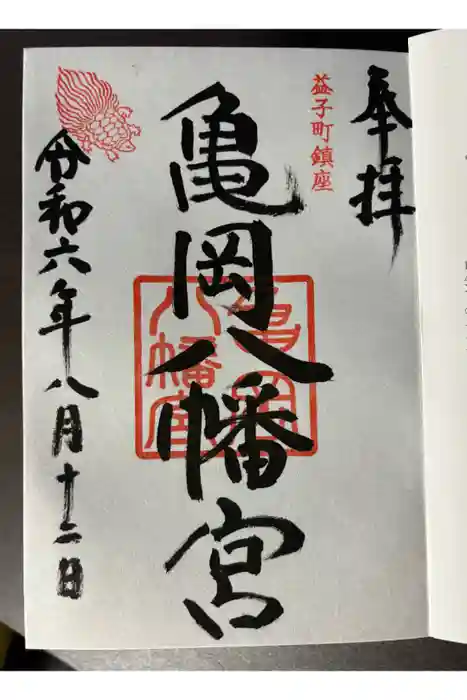 奉拝
益子町鎮座
亀岡八幡宮
亀岡
八幡宮
令和六年八月十二日